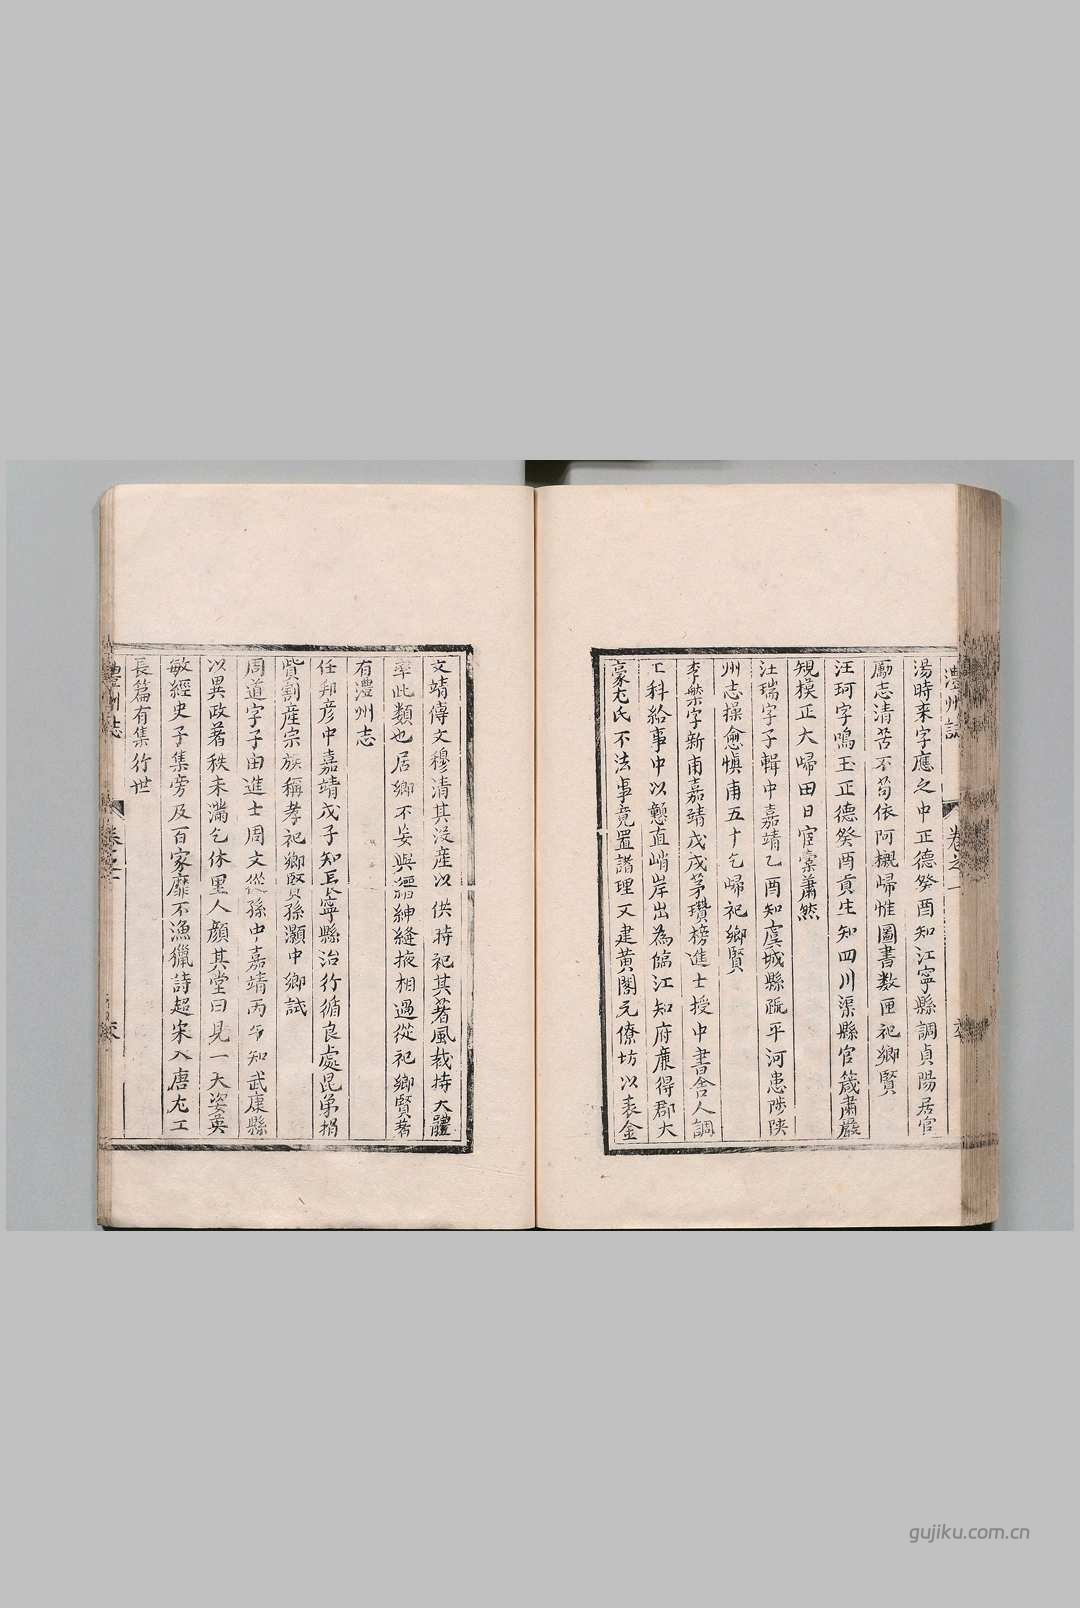 澧州誌
卷之
湯時来字應之中正德癸酉知江寧縣調貞陽居官
勵志清苦不苟依阿櫬歸惟圖書数匣祀鄉賢
汪珂字鳴玉正德癸酉貢生知四川渠縣官箴肅嚴
規模正大歸田日宦橐蕭然
汪瑞字子輯中嘉靖乙酉知虞城縣疏平河患陟陕
州志操愈愼甫五十乞歸祀鄉賢
李榮字新甫嘉靖戊戌茅瓚榜進士授中書舍人調
工科給事中以戅直峭岸出為臨江知府廉得郡大
豪尤氏不法事竟置諸理又建黄閣元僚坊以表金
文靖傳文穆清其沒産以供時祀其著風裁持大體
率此類也居鄉不妄與縉紳縫掖相過從祀鄉賢著
有澧州志
任邦彦中嘉靖戊子知長寧縣治行循良處昆弟捐
貲割産宗族稱孝祀鄉賢孫灝中鄉試
周道字子由進士周文從孫中嘉靖丙午知武康縣
以異政著秩未滿乞休里人顔其堂曰見一天姿英
敏經史子集旁及百家靡不漁獵詩超宋入唐尤工
長篇有集行世
澧州志
gujiku.com.cn